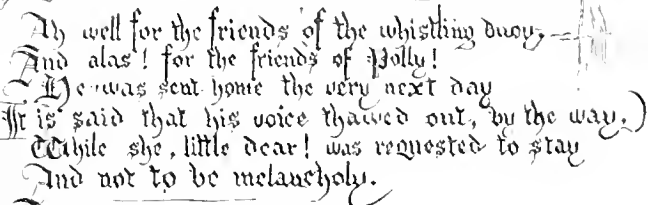 Ah well for the friends of the whistling buoy,
And alas! for the friends of Polly!
He was sent home the very next day
It is said that his voice thawed out, by the way,)
While she, little dear! was requested to stay
And not to be melancholy.